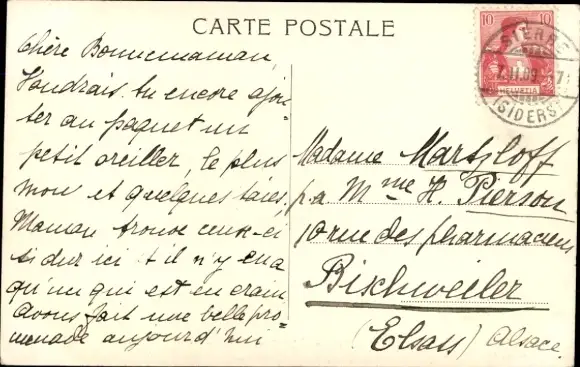 CARTE POSTALE
Chère Bonnemaman,
Voudrais-tu encore ajou=
ter au paquet un
petit oreiller, le plus
mou et quelques taies.
Maman trouve ceux-ci
si dur ici + il n'y en a
qu'un qui est en crain
Avons fait une belle pro=
menade aujourd'hui
10 10
HELVETIA
SIERRE
(SIDERS)
Madame Martzloff
p.a Mme H. Pierson
10 rue des pharmaciens
Bischweiler
(Elsass) Alsace